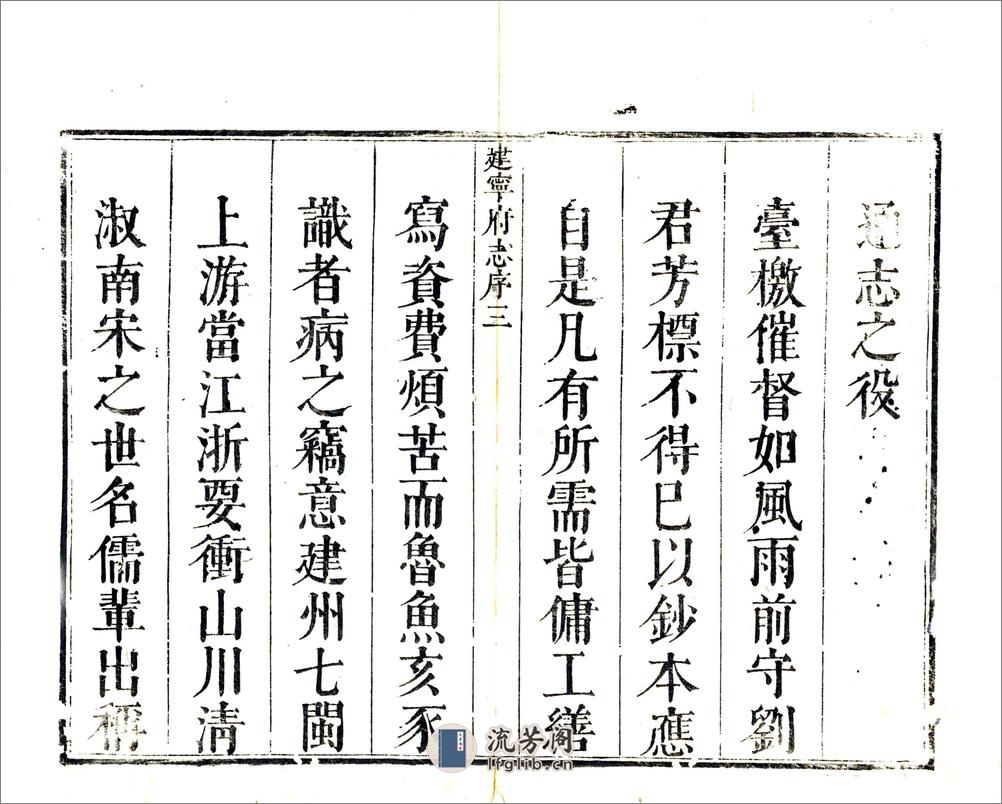 通志之役
臺檄催督如風雨前守劉
君芳標不得已以鈔本應
自是凡有所需皆傭工繕
建寧府志序 三
寫資費煩苦而魯魚亥豕
識者病之竊意建州七閩
上游當江浙要衝山川淸
淑南宋之世名儒輩出稱
流芳阁
lfglib.cn